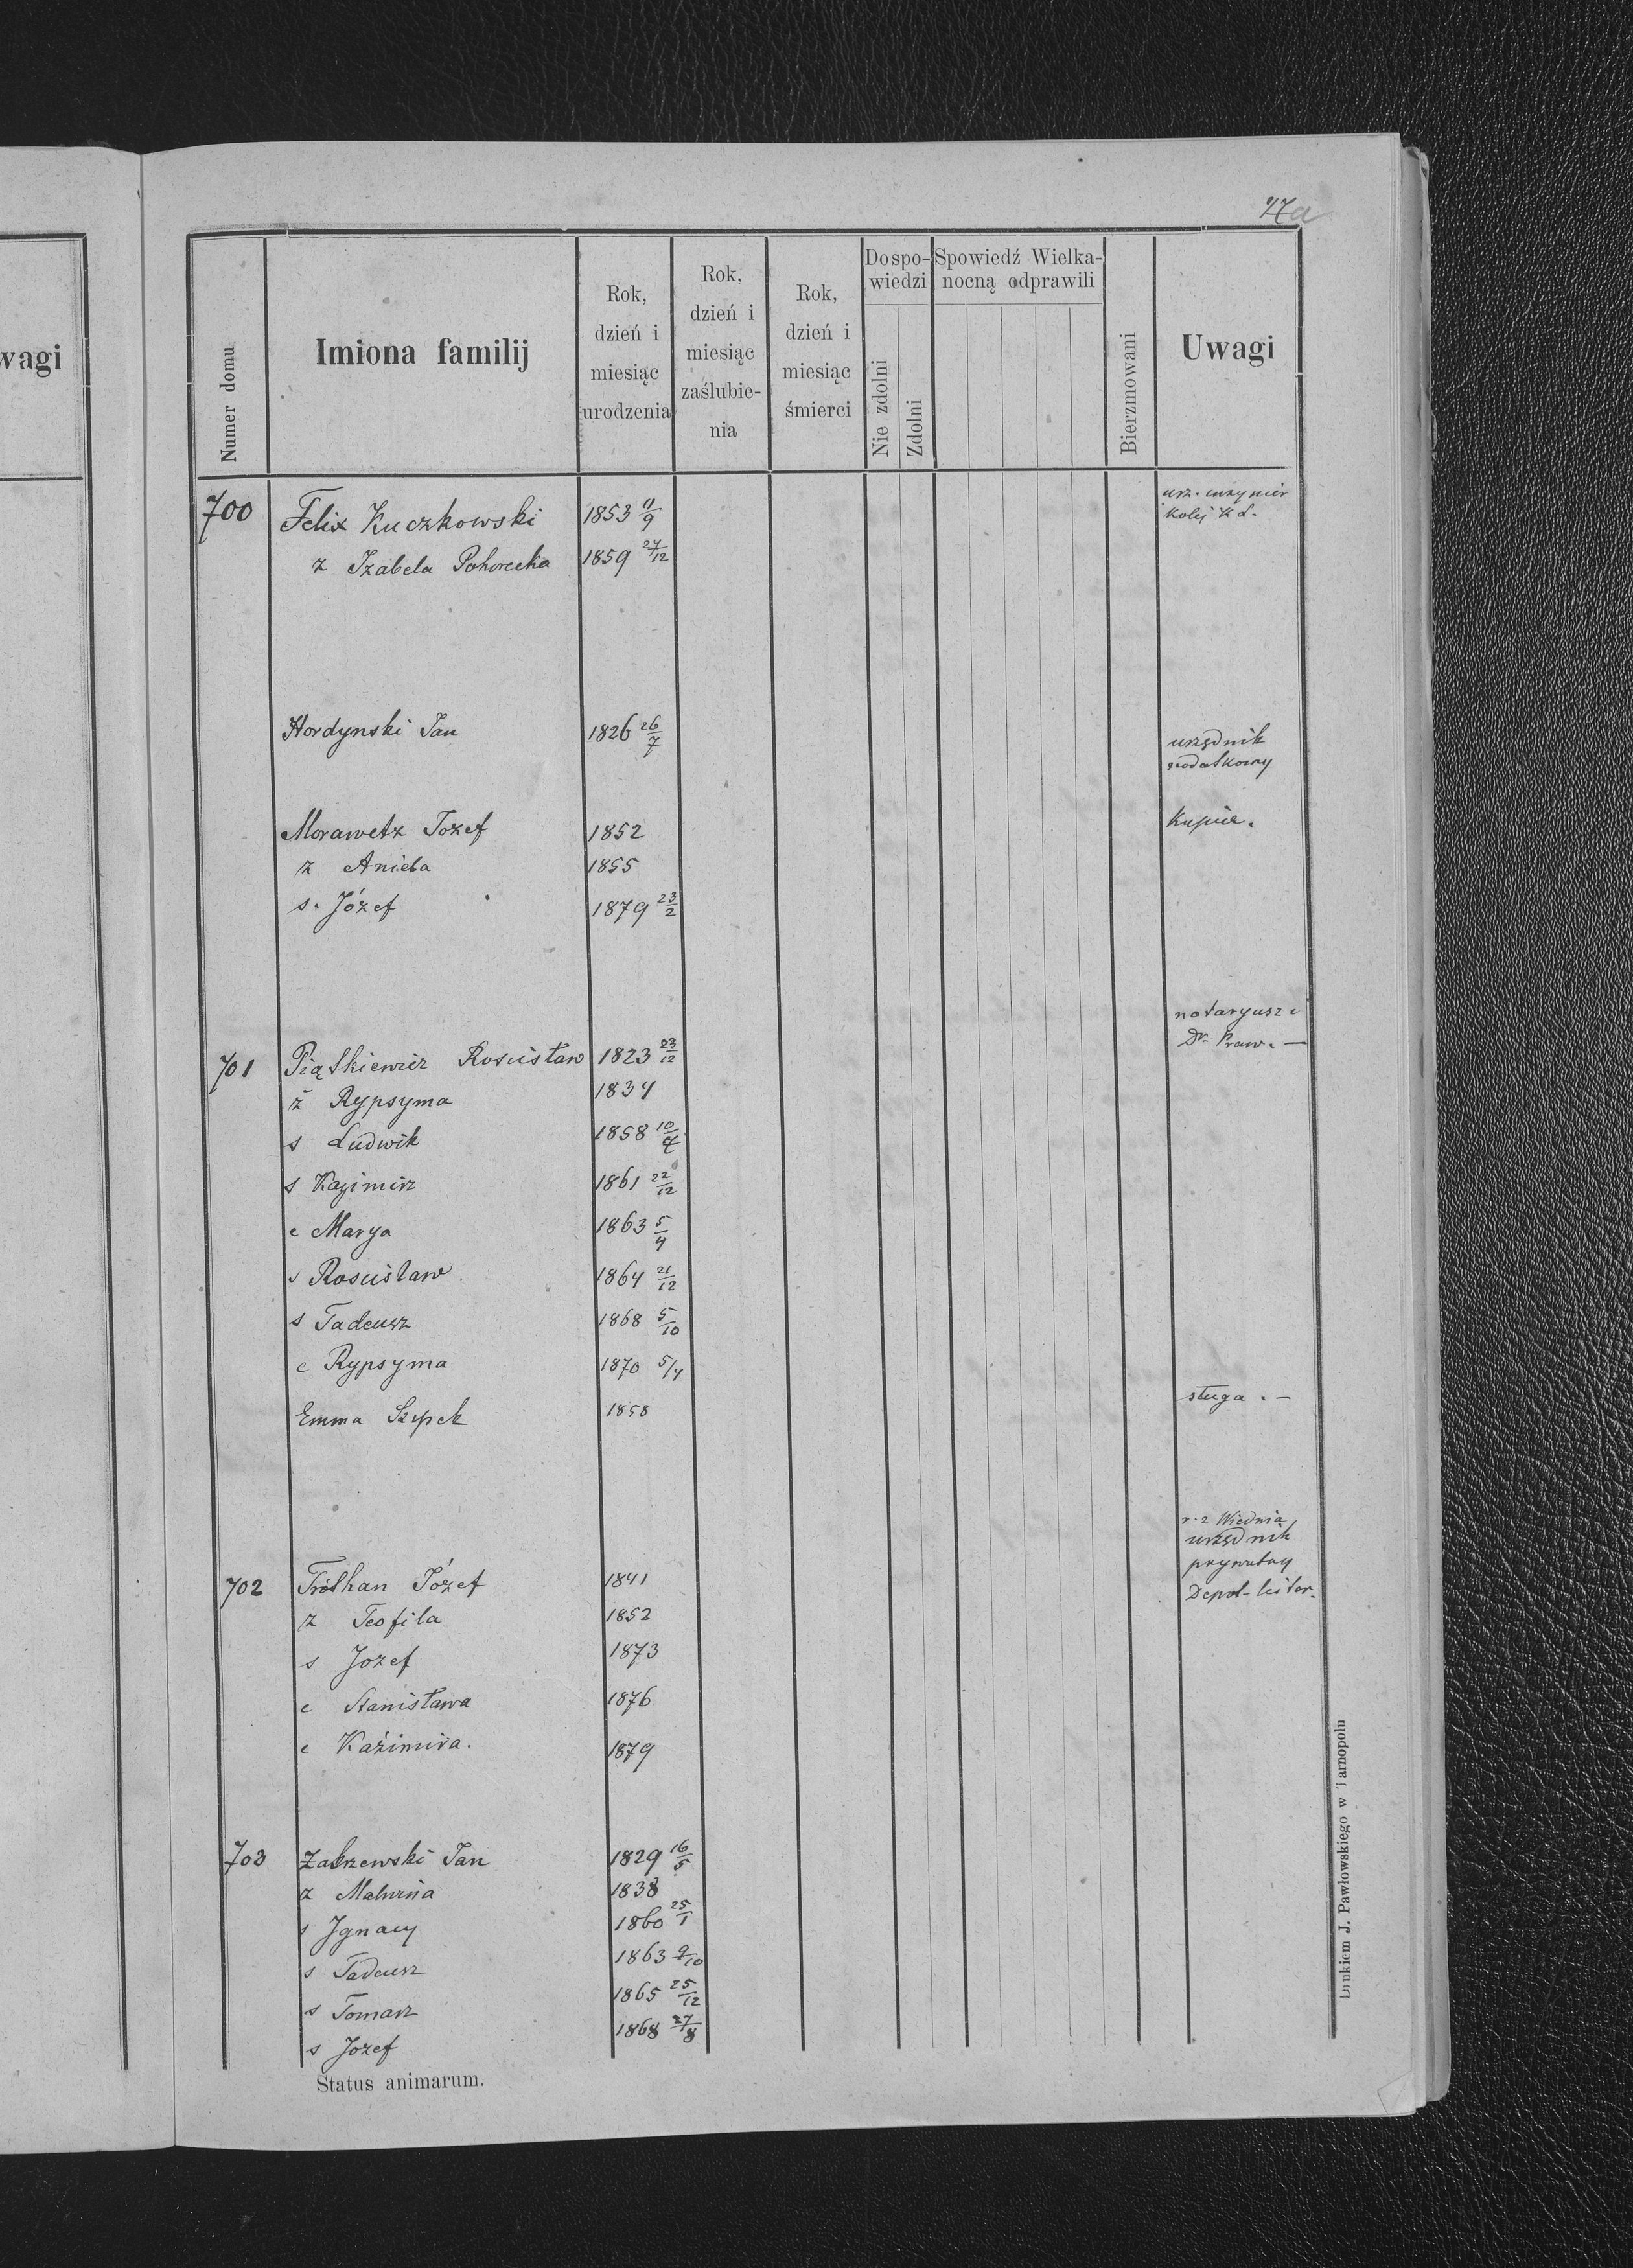 wagi
47a
Numer domu
Imiona familij
Rok, dzień i miesiąc urodzenia
Rok, dzień i miesiąc zaślubie- nia
Rok, dzień i miesiąc śmierci
Do spo- wiedzi
Nie zdolni
Zdolni
Spowiedź Wielka- nocną odprawili
Bierzmowani
Uwagi
700 Felix Kuczkowski 1853 11/9 urz. inżynier
kolej K L.
z Izabela Pohorecka 1859 27/12
Hordynski Jan 1826 26/7 urzędnik
podatkowy
Morawetz Jozef 1852 Kupiec.
z Aniela 1855
s. Józef 1879 23/2
notaryusz i
701 Piątkiewicz Rościsław 1823 23/12 Dr. Praw. —
ż Rypsyma 1834
s Ludwik 1858 10/7
s Kazimirz 1861 22/12
c Marya 1863 5/4
s Rościsław 1864 21/12
s Tadeusz 1868 5/10
c Rypsyma 1870 5/4
Emma Szpek 1858 sługa . —
r. z Wiednia
urzędnik
prywatny
702 Józef 1841 Depot-leiter.
z Teofila 1852
s Jozef 1873
c Stanisława 1876
c Kaźimira. 1879
703 Zabrzewski Jan 1829 16/5
z Malwina 1838
s Ignacy 1860 25/1
s Tadeusz 1863 9/10
s Tomasz 1865 25/12
s Jozef 1868 27/8
Status animarum.
Drukiem J. Pawłowskiego w Tarnopolu